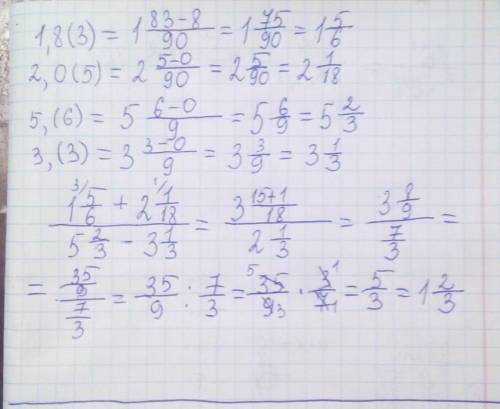 1,8(3) = 1 83-8/90 = 1 75/90 = 1 5/6
2,0(5) = 2 5-0/90 = 2 5/90 = 2 1/18
5,(6) = 5 6-0/9 = 5 6/9 = 5 2/3
3,(3) = 3 3-0/9 = 3 3/9 = 3 1/3
(1 5/6 + 2 1/18)/(5 2/3 - 3 1/3) = (3 15+1/18)/(2 1/3) = (3 8/9)/(7/3) =
= (35/9)/(7/3) = 35/9 : 7/3 = 35/9 · 3/7 = 5/3 = 1 2/3